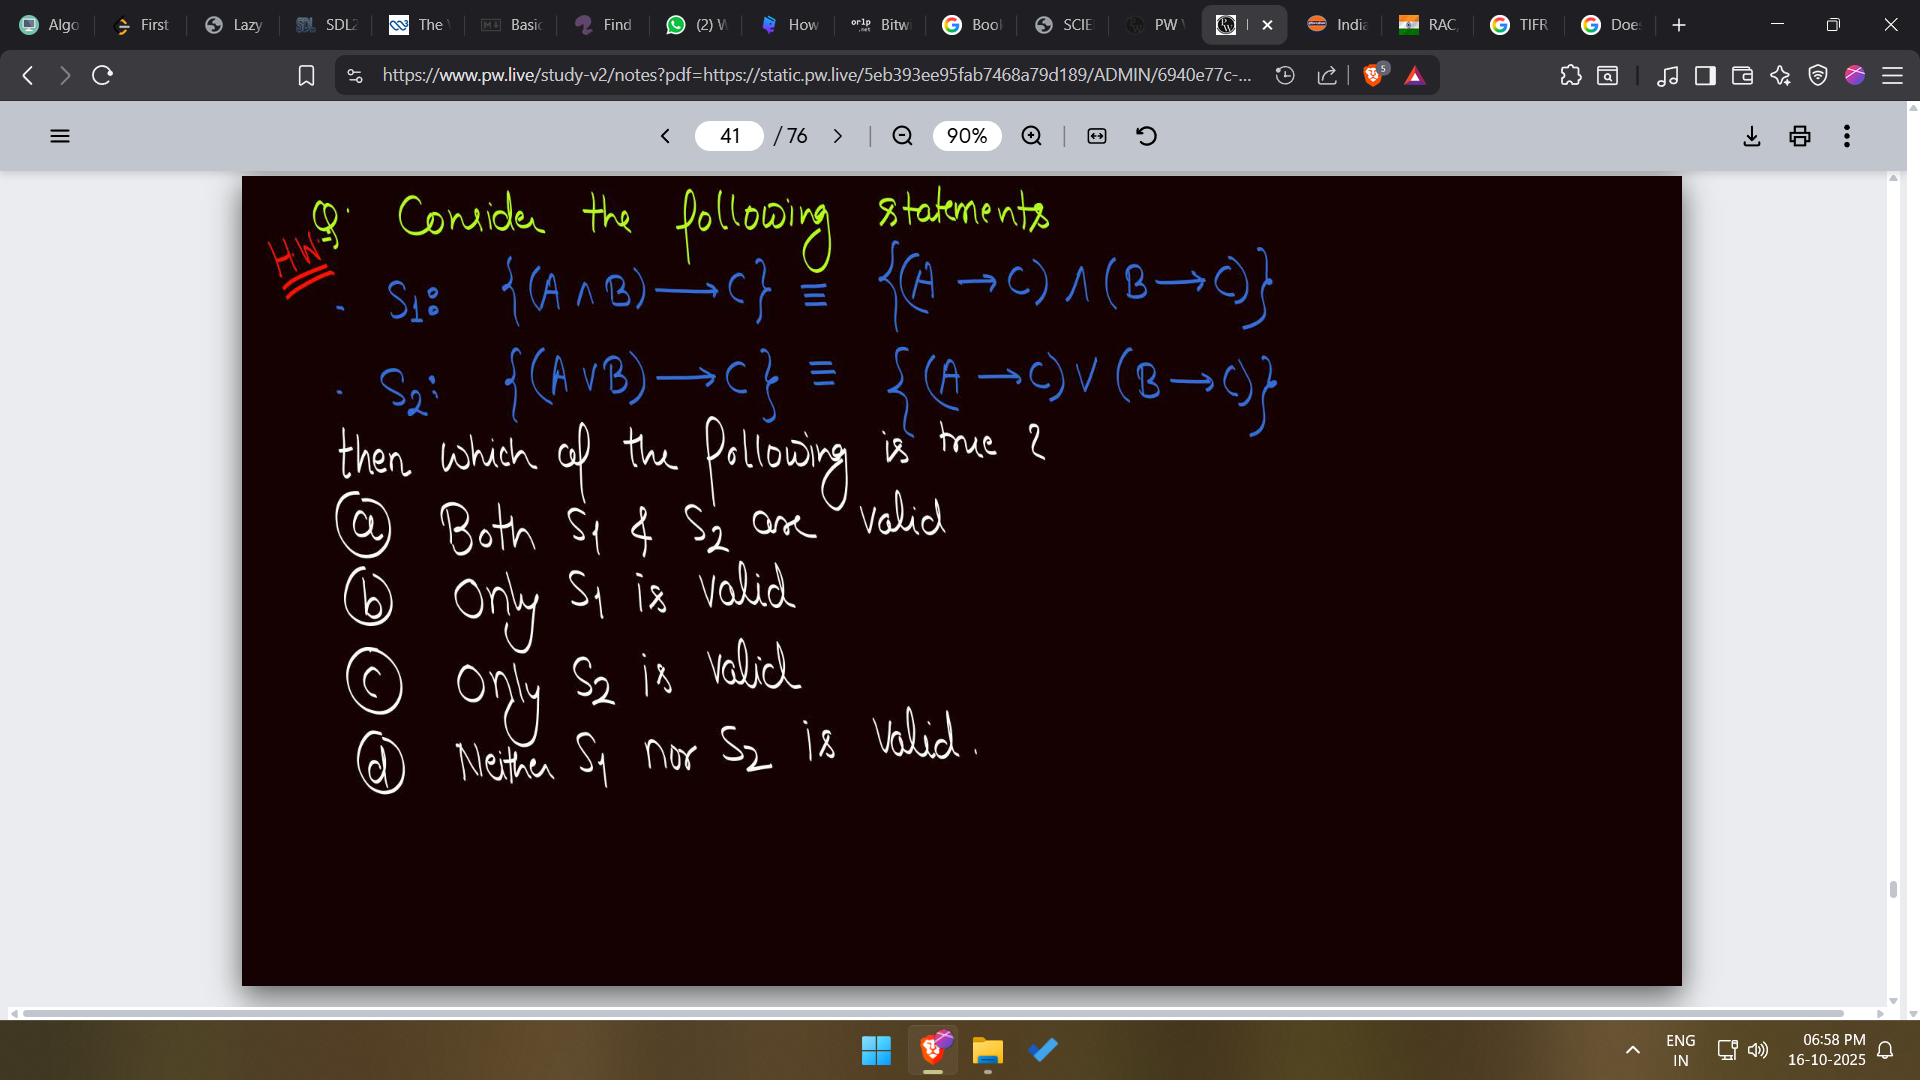 Algo
First
Lazy
SDL2
The
Basic
Find
(2) W
How
Bitwi
Book
SCIE
PW
India
RAC,
TIFR
Does
https://www.pw.live/study-v2/notes?pdf=https://static.pw.live/5eb393ee95fab7468a79d189/ADMIN/6940e77c-...
5
41 / 76
90%
Q. Consider the following statements
H.W.
• S₁: {(A ∧ B) ⟶ C} ≡ {(A ⟶ C) ∧ (B ⟶ C)}
• S₂: {(A ∨ B) ⟶ C} ≡ {(A ⟶ C) ∨ (B ⟶ C)}
then which of the following is true ?
ⓐ Both S₁ & S₂ are valid
ⓑ Only S₁ is valid
ⓒ Only S₂ is valid
ⓓ Neither S₁ nor S₂ is valid.
ENG
IN
06:58 PM
16-10-2025